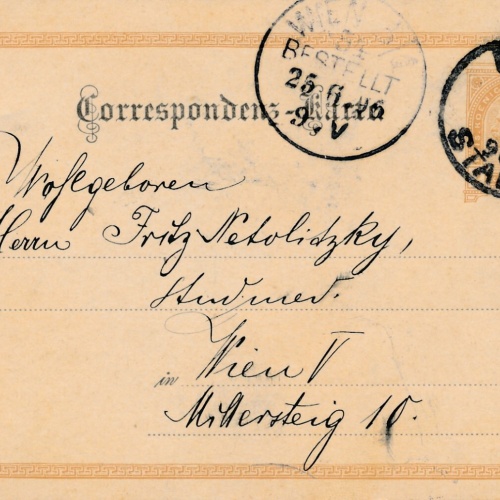 WIEN
BESTELLT
25 6 96
-9 V
Correspondenz-Karte
Wohlgeboren
Herrn Fritz Netolitzky,
Stud. med.
in Wien V
Mittersteig 10.